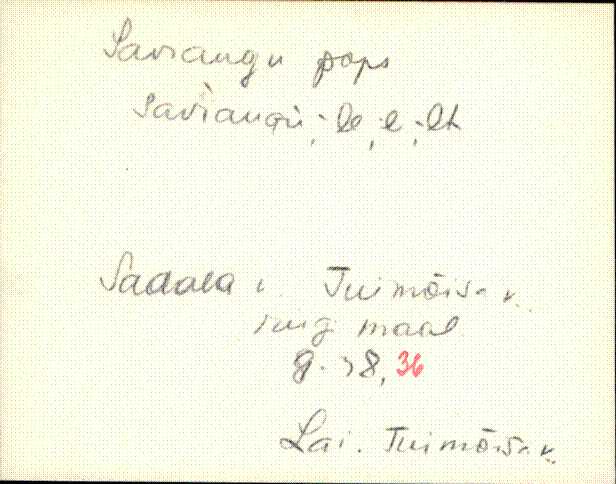 Saviaugu pops
saviaugù, -le, -l, -lt
Sadala v. Tuimõisa k.
ing maal
g. 38, 36
Lai. Tuimõisa k.